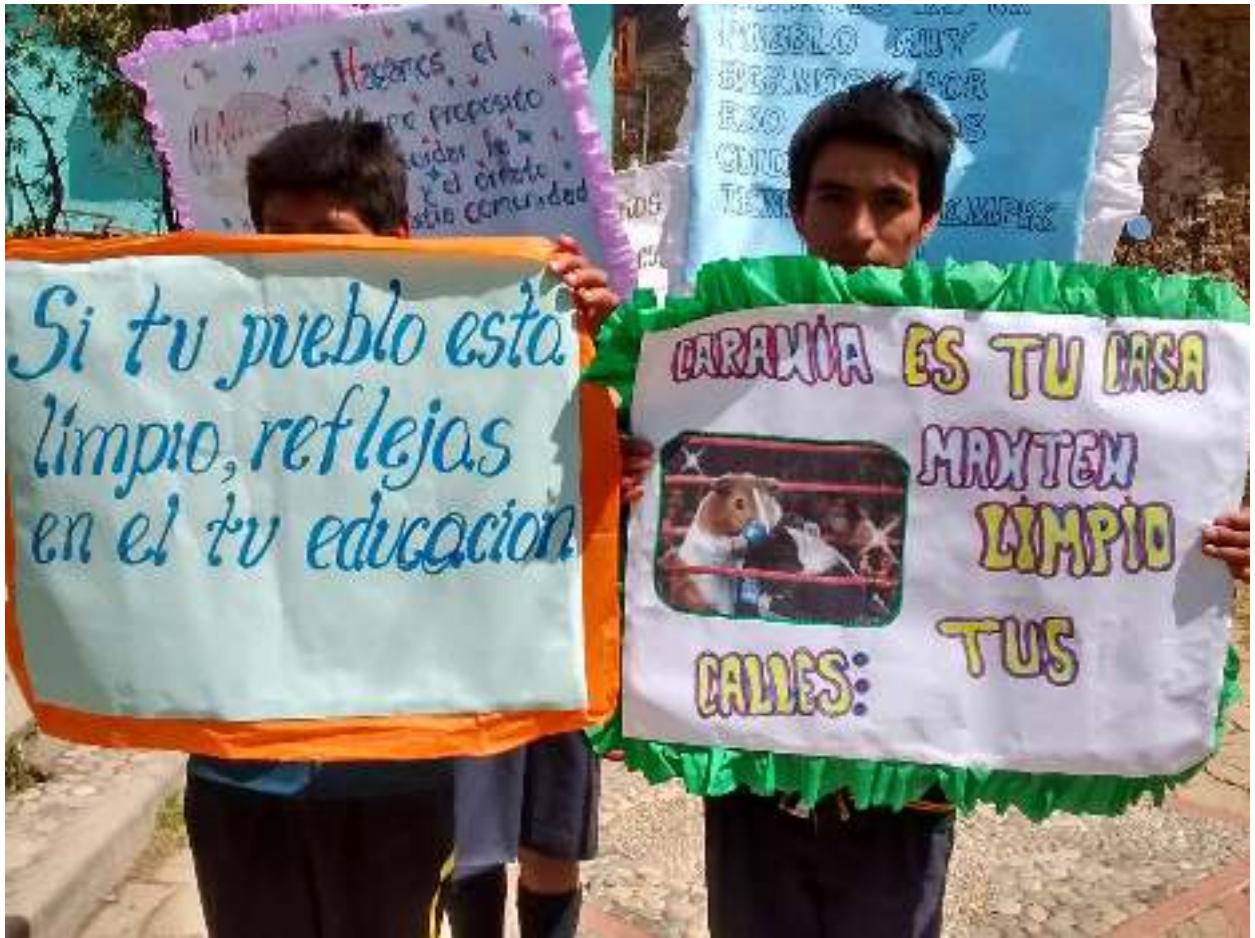 Hagamos el
proposito
cuidar la
y el ornato
comunidad
PUEBLO MUY
POR
ESO
Si tu pueblo esta
limpio, reflejas
en el tu educacion
CARANIA ES TU CASA
MANTEN
LIMPIO
TUS
CALLES: